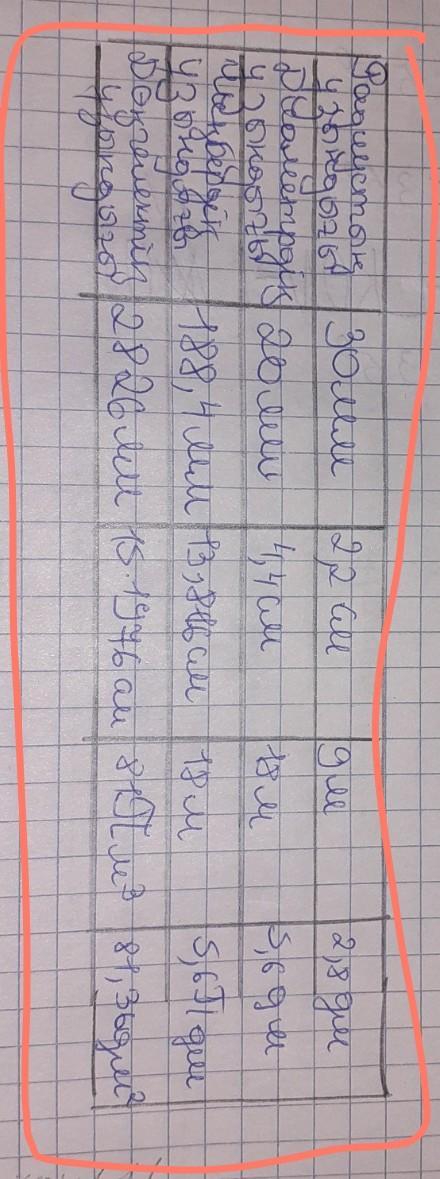 Радиустың ұзындығы 30мм 2,2 см 9м 2,8дм
Диаметрдің ұзындығы 20мм 4,4см 18м 5,6дм
Шеңбердің ұзындығы 188,4мм 13,816см 18м 5,6π дм
Дөңгелектің ұзындығы 2826мм 15.1976см 81π м³